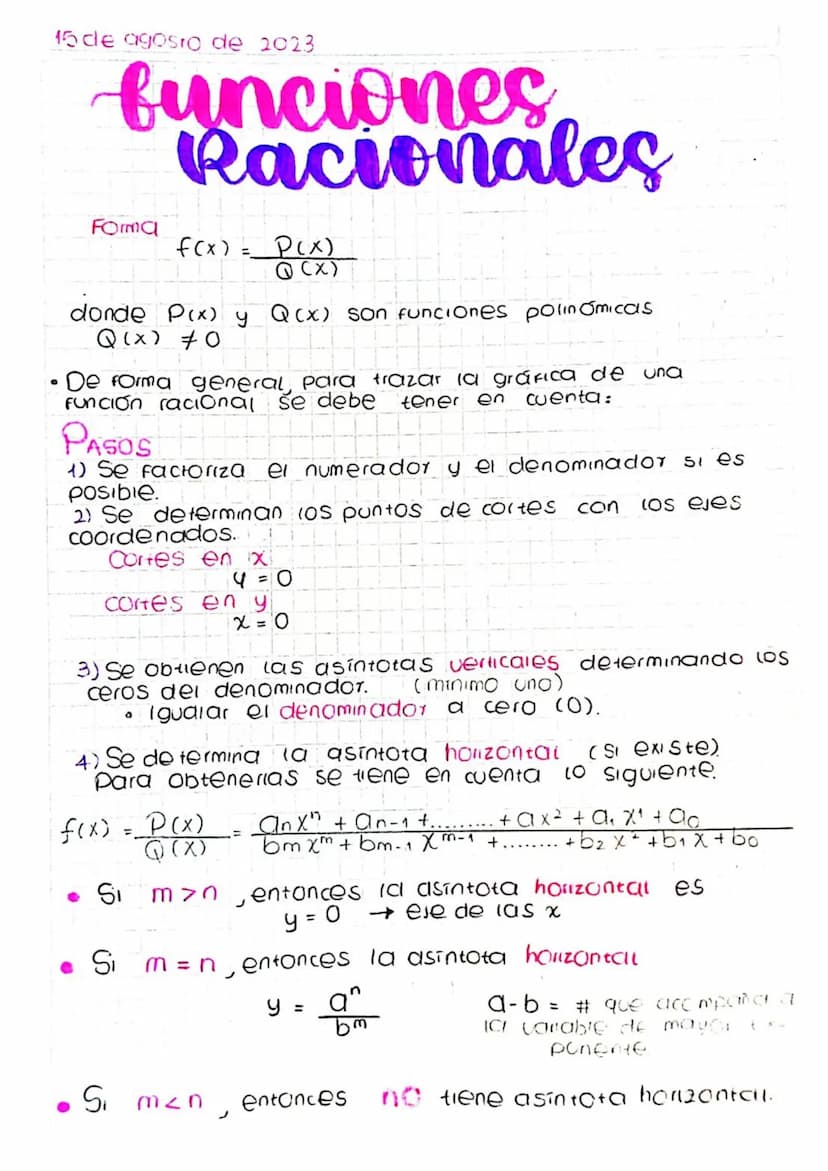 15 de agosto de 2023
funciones
Racionales
Forma
f(x) = P(x)
Q(x)
donde P(x) y Q(x) son funciones polinómicas
Q(x) ≠ 0
• De forma general, para trazar la gráfica de una
función racional se debe tener en cuenta:
PASOS
1) Se factoriza el numerador y el denominador si es
posible.
2) Se determinan los puntos de cortes con los ejes
coordenados.
Cortes en x
y = 0
cortes en y
x = 0
3) Se obtienen las asíntotas verticales determinando los
ceros del denominador. (mínimo uno)
• Igualar el denominador a cero (0).
4) Se determina la asíntota horizontal (si existe)
Para obtenerlas se tiene en cuenta lo siguiente.
f(x) = P(x) = anxⁿ + an-1 +......... + ax² + a₁x¹ + a₀
Q(x) bmxᵐ + bm-1 xᵐ⁻¹ +........ + b₂x² + b₁x + b₀
• Si m > n, entonces la asíntota horizontal es
y = 0 → eje de las x
• Si m = n, entonces la asíntota horizontal
y = aⁿ
bᵐ
a-b = # que acompaña a
la variable de mayor ex
ponente
• Si m < n, entonces no tiene asíntota horizontal.